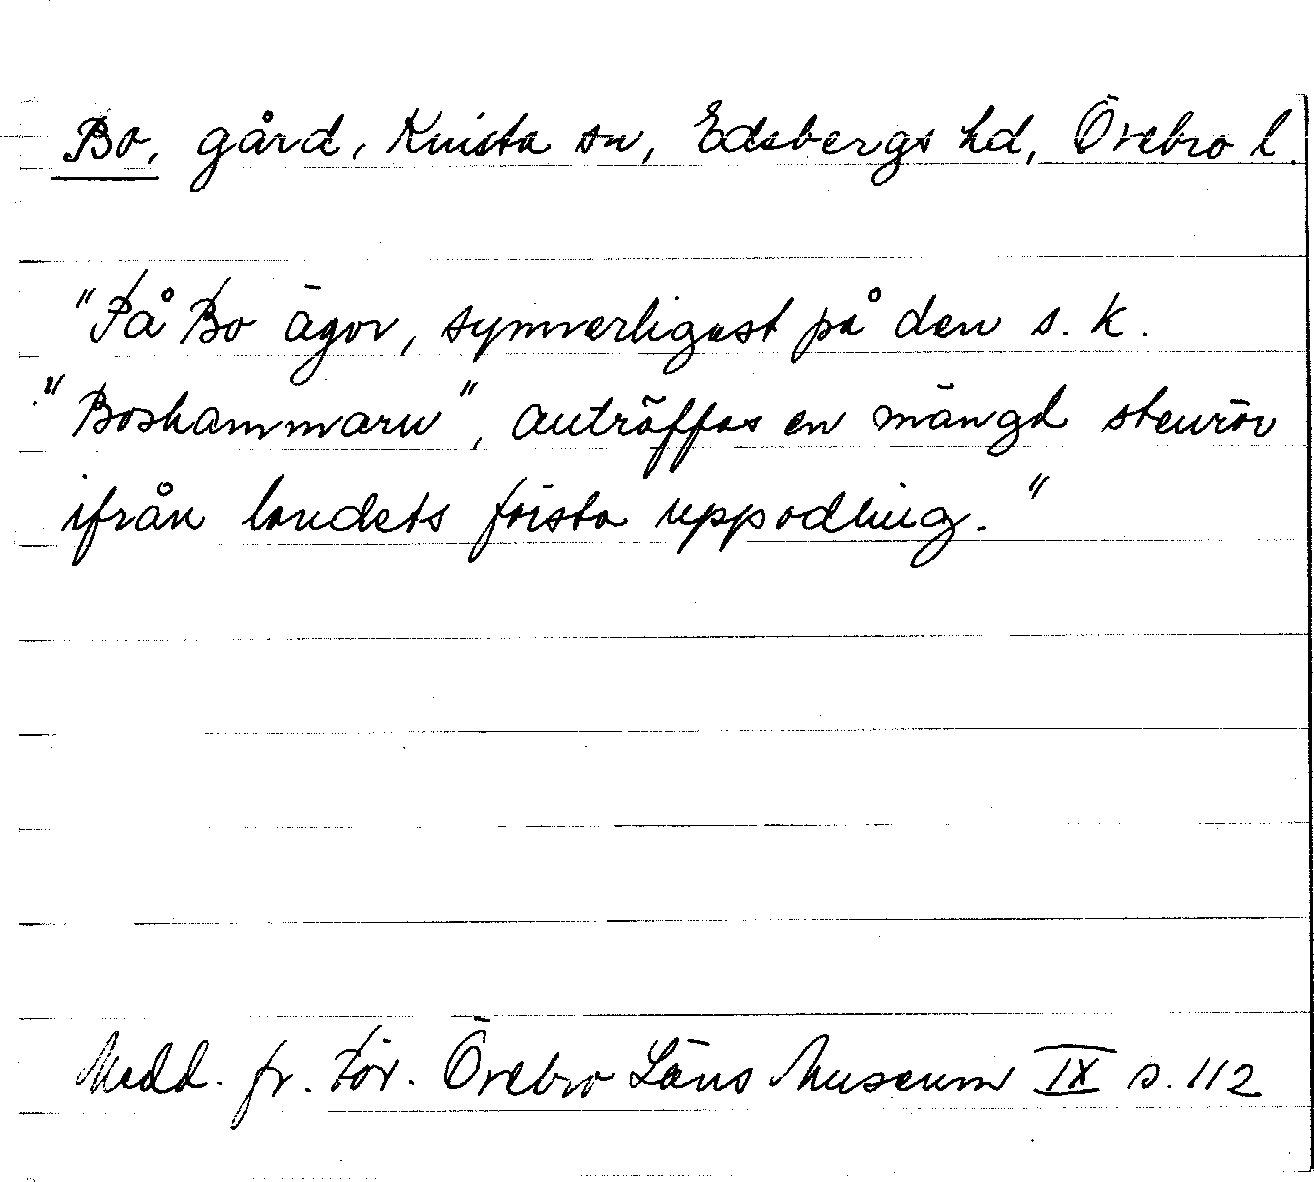 Bo, gård, Knista sn, Edsbergs hd, Örebro l.
"På Bo ägor, synnerligast på den s. k.
"Boskammarn", anträffas en mängd stenrör
ifrån landets första uppodling."
Medd. fr. För. Örebro Läns Museum IX s. 112